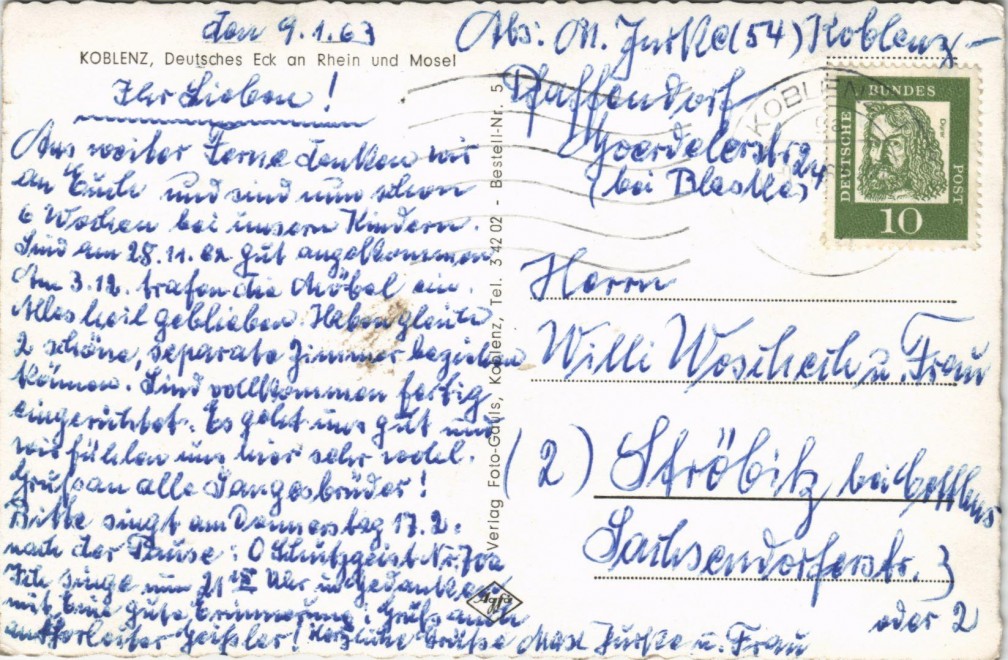 den 9.1.63
KOBLENZ, Deutsches Eck an Rhein und Mosel
Ihr Lieben!
Aus weiter Ferne denken wir
an Euch und sind nun schon
6 Wochen bei unsern Kindern.
Sind am 28.11.62 gut angekommen
Am 3.12. trafen die Möbel ein.
Alles heil geblieben. Haben gleich
2 schöne, separate Zimmer beziehen
können. Sind vollkommen fertig
eingerichtet. Es geht uns gut und
wir fühlen uns hier sehr wohl.
Gruß an alle Sangesbrüder!
Bitte singt am Donnerstag 17.2.
nach der Pause: O Schutzgeist Nr. 70a
Ich singe um 21 Uhr in Gedanken
mit. Eine gute Erinnerung! Gruß auch
an Chorleiter Geißler! Herzliche Grüße Max Jurke u. Frau
Verlag Foto-Gauls, Koblenz, Tel. 3 42 02 - Bestell-Nr. 5
Agfa
Abs: M. Jurke (54) Koblenz-
Pfaffendorf
Goerdelerstr. 24
(bei
KOBLENZ
DEUTSCHE BUNDESPOST
Dürer
10
Herrn
Willi Woschech u. Frau
(2) Ströbitz bei Cottbus
Sachsendorferstr. 3
oder 2